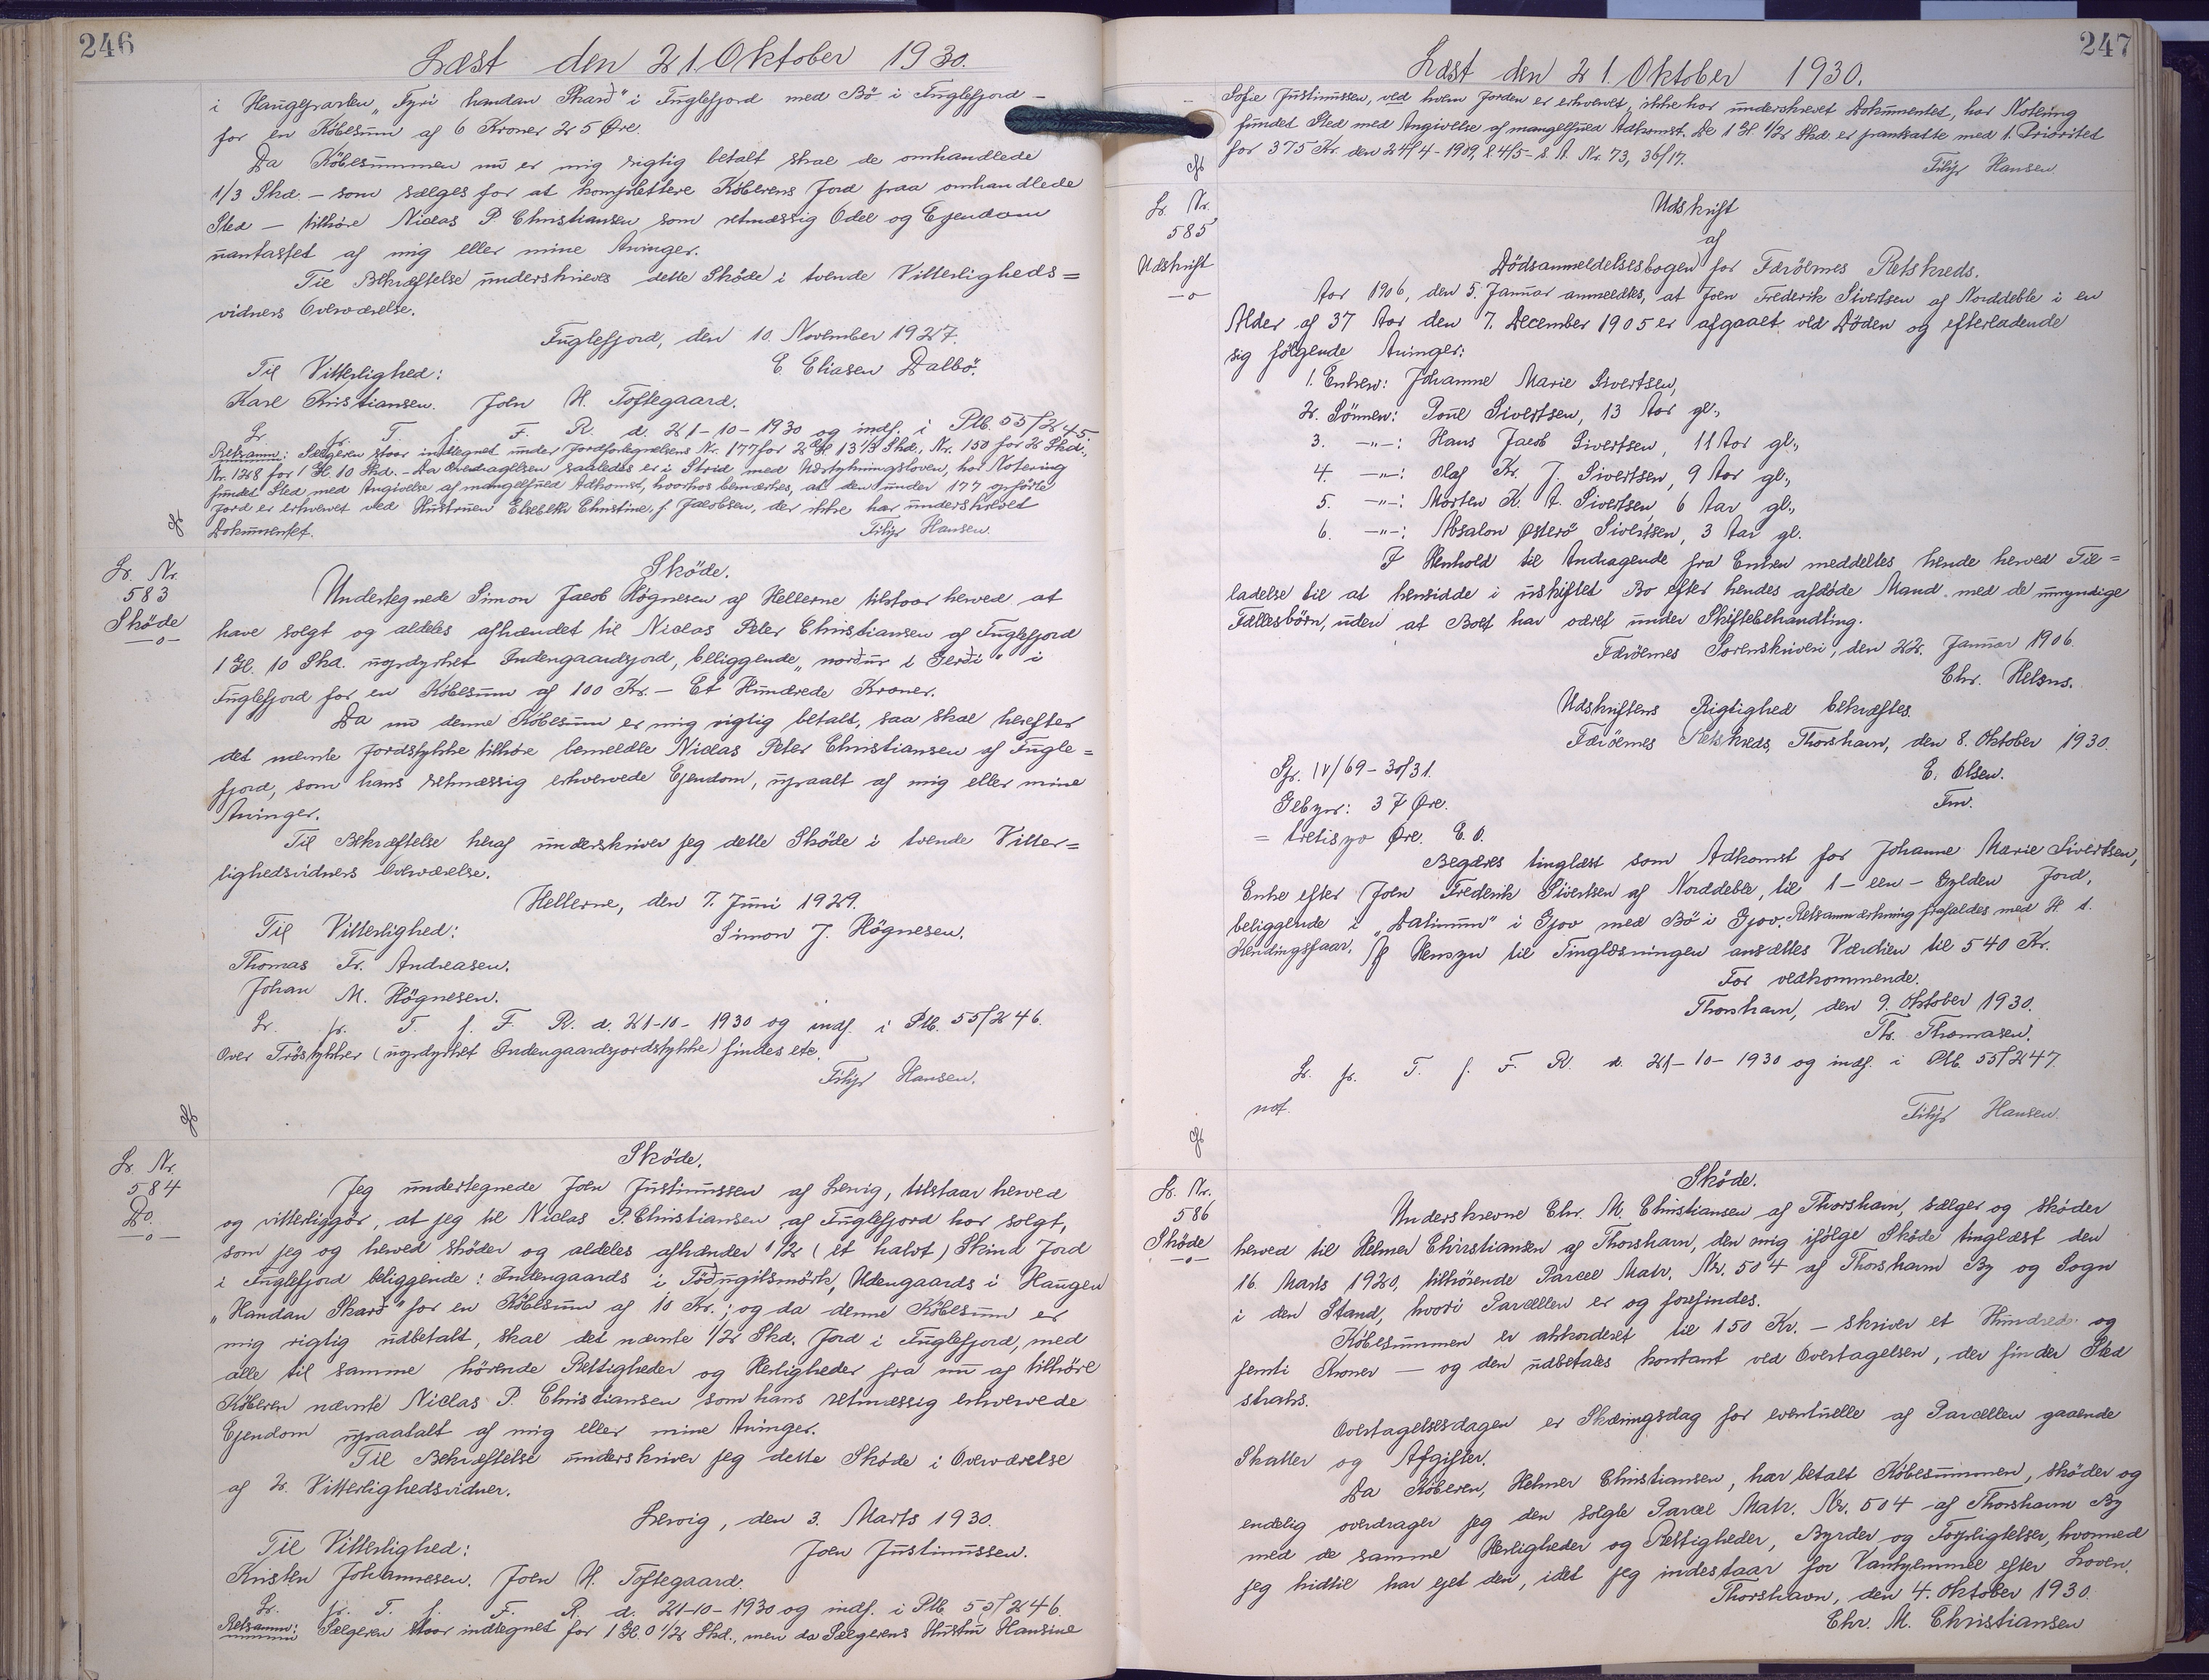 246
Læst den 21. Oktober 1930.
i Haugeparten „Fyri handan Skarð" i Fuglefjord med Bö i Fuglefjord –
for en Köbesum af 6 Kroner 25 Øre.
Da Köbesummen nu er mig rigtig betalt skal de omhandlede
1/3 Skd. – som sælges for at komplettere Köberens Jord paa omhandlede
Sted – tilhöre Niclas P. Christiansen som retmæssig Odel og Ejendom
uantastet af mig eller mine Arvinger.
Til Bekræftelse underskrives dette Sköde i tvende Vitterligheds=
vidners Overværelse.
Fuglefjord, den 10. November 1927.
Til Vitterlighed: E. Eliasen Dalbö.
Karl Kristiansen. Joen H. Toftegaard.
Lr. pr. T. f. F. R. d. 21-10-1930 og indf. i Ptb. 55/245.
Retsanm: Sælgeren staar indtegnet under Jordfortegnelsens Nr. 177 for 2 Gl. 13 1/3 Skd., Nr. 150 for 2 Skd.,
Nr. 1268 for 1 Gl. 10 Skd. – Da Overdragelsen saaledes er i Strid med Udstykningsloven, har Notering
fundet Sted med Angivelse af mangelfuld Adkomst, hvorhos bemærkes, at den under 177 opförte
Jord er erhvervet ved Hustruen Elsebeth Christine, f. Jacobsen, der ikke har underskrevet
Dokumentet. Filip Hansen.
Lr. Nr.
583
Sköde
—o—
Sköde.
Undertegnede Simon Jacob Högnesen af Hellerne tilstaar herved at
have solgt og aldeles afhændet til Niclas Peter Christiansen af Fuglefjord
1 Gl. 10 Skd. uopdyrket Indengaardsjord, beliggende „norður í Gerði" i
Fuglefjord for en Köbesum af 100 Kr. – Et Hundrede Kroner.
Da nu denne Köbesum er mig rigtig betalt, saa skal herefter
det nævnte Jordstykke tilhöre bemeldte Niclas Peter Christiansen af Fugle=
fjord, som hans retmæssig erhvervede Ejendom, upaalt af mig eller mine
Arvinger.
Til Bekræftelse heraf underskriver jeg dette Sköde i tvende Vitter=
lighedsvidners Overværelse.
Hellerne, den 7. Juni 1929.
Til Vitterlighed: Simon J. Högnesen.
Thomas Fr. Andreasen.
Johan M. Högnesen.
Lr. pr. T. f. F. R. d. 21-10-1930 og indf. i Ptb. 55/246.
Over Tröstykker (uopdyrket Indengaardsjordstykke) findes etc.
Filip Hansen.
Lr. Nr.
584
Do.
—o—
Sköde.
Jeg undertegnede Joen Justinussen af Lervig, tilstaar herved
og vitterliggör, at jeg til Niclas P. Christiansen af Fuglefjord har solgt,
som jeg og herved sköder og aldeles afhænder 1/2 (et halvt) Skind Jord
i Fuglefjord beliggende: Indengaards i Töðugilsmörk, Udengaards i Haugen
„Handan Skarð" for en Köbesum af 10 Kr.; og da denne Köbesum er
mig rigtig udbetalt, skal det nævnte 1/2 Skd. Jord i Fuglefjord, med
alle til samme hörende Rettigheder og Herligheder fra nu af tilhöre
Köberen nævnte Niclas P. Christiansen som hans retmæssig erhvervede
Ejendom upaatalt af mig eller mine Arvinger.
Til Bekræftelse underskriver jeg dette Sköde i Overværelse
af 2 Vitterlighedsvidner.
Lervig, den 3. Marts 1930.
Til Vitterlighed: Joen Justinussen.
Kristen Johannesen. Joen H. Toftegaard.
Lr. pr. T. f. F. R. d. 21-10-1930 og indf. i Ptb. 55/246.
Retsanm: Sælgeren staar indtegnet for 1 Gl. 0 1/2 Skd., men da Sælgerens Hustru Hansine
247
Læst den 21. Oktober 1930.
Sofie Justinussen, ved hvem Jorden er erhvervet, ikke har underskrevet Dokumentet, har Notering
fundet Sted med Angivelse af mangelfuld Adkomst. De 1 Gl. 1/2 Skd. er pantsatte med 1. Prioritet
for 375 Kr. den 24/4-1909, l. 4/5- s. A. Nr. 73, 36/17.
Filip Hansen.
Lr. Nr.
585
Udskrift
—o—
Udskrift
af
Dödsanmeldelsesbogen for Færöernes Retskreds.
Aar 1906, den 5. Januar anmeldtes, at Joen Frederik Sivertsen af Norddeble i en
Alder af 37 Aar den 7. December 1905 er afgaaet ved Döden og efterladende
sig fölgende Arvinger:
1. Enken: Johanne Marie Sivertsen,
2. Sönnen: Poul Sivertsen, 13 Aar gl.,
3. —"—: Hans Jacob Sivertsen, 11 Aar gl.,
4. —"—: Olaf Kr. J. Sivertsen, 9 Aar gl.,
5. —"—: Morten K. A. Sivertsen, 6 Aar gl.,
6. —"—: Absalon Østerö Sivertsen, 3 Aar gl.
I Henhold til Andragende fra Enken meddeltes hende herved Til=
ladelse til at hensidde i uskiftet Bo efter hendes afdöde Mand med de umyndige
Fællesbörn, uden at Boet har været under Skiftebehandling.
Færöernes Sorenskriveri, den 22. Januar 1906.
Chr. Helsns.
Udskriftens Rigtighed bekræftes.
Færöernes Retskreds, Thorshavn, den 8. Oktober 1930.
Spr. IV/69-30/31. E. Olsen.
Gebyr: 37 Øre. Fm.
= tretisyv Øre. E. O.
Begæres tinglæst som Adkomst for Johanne Marie Sivertsen,
Enke efter Joen Frederik Sivertsen af Norddeble, til 1 – een – Gylden Jord,
beliggende i „Dalinum" i Gjov med Bö i Gjov. Retsanmærkning frafaldes med H. t.
Hendingsfaar. Af Hensyn til Tinglæsningen ansættes Værdien til 540 Kr.
For vedkommende.
Thorshavn, den 9. Oktober 1930.
Th. Thomasen.
Lr. pr. T. f. F. R. d. 21-10-1930 og indf. i Ptb. 55/247.
not. Filip Hansen.
Lr. Nr.
586
Sköde
—o—
Sköde.
Underskrevne Chr. M. Christiansen af Thorshavn, sælger og sköder
herved til Helmer Christiansen af Thorshavn, den mig ifölge Sköde tinglæst den
16. Marts 1920, tilhörende Parcel Matr. Nr. 504 af Thorshavn By og Sogn
i den Stand, hvori Parcellen er og forefindes.
Köbesummen er akkorderet til 150 Kr. – skriver et Hundrede og
femti Kroner – og den udbetales kontant ved Overtagelsen, der finder Sted
straks.
Overtagelsesdagen er Skæringsdag for eventuelle af Parcellen gaaende
Skatter og Afgifter.
Da Köberen, Helmer Christiansen, har betalt Köbesummen, sköder og
endelig overdrager jeg den solgte Parcel Matr. Nr. 504 af Thorshavn By
med de samme Herligheder og Rettigheder, Byrder og Forpligtelser, hvormed
jeg hidtil har ejet den, idet jeg indestaar for Vanhjemmel efter Loven.
Thorshavn, den 4. Oktober 1930.
Chr. M. Christiansen